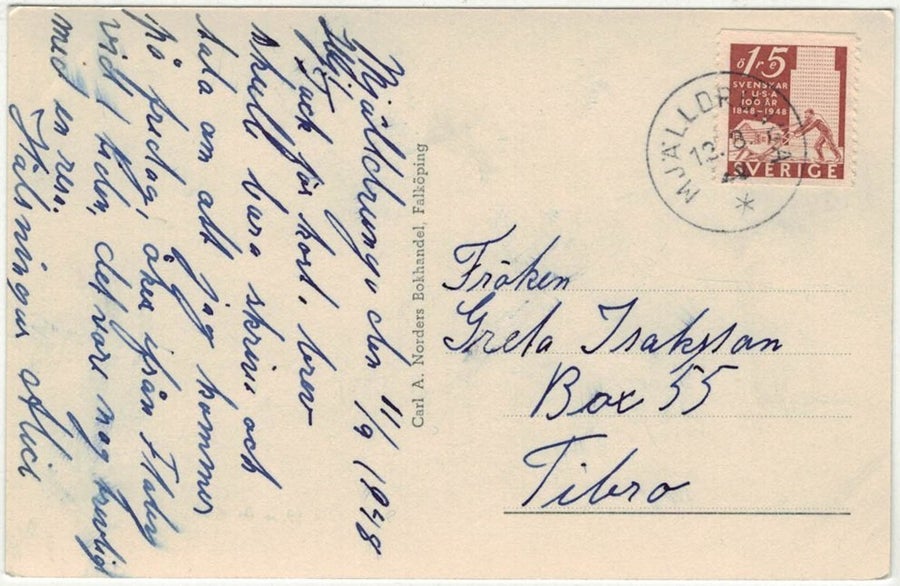 Mjälldrunga den 11/9 1948
Hej
Tack för kort, brev
skull bara skriva och
tala om att jag kommer
på fredag, åker ifrån
vid tiden, det vore nog trevligt
med en
Hälsningar Alici
Carl A. Norders Bokhandel, Falköping
15
öre
SVENSKAR
I USA
100 ÅR
1848-1948
SVERIGE
MJÄLLDRUNGA
12. 9.
Fröken
Greta Isaksson
Box 55
Tibro